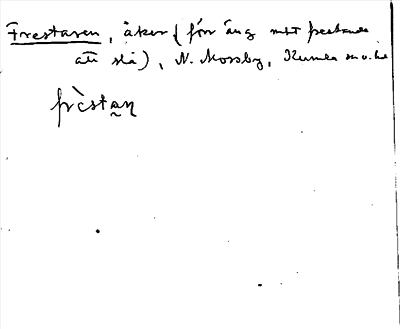 Frestaren, åker (förr äng
att slå), N. Mossby, Kumla
frèstaṇ